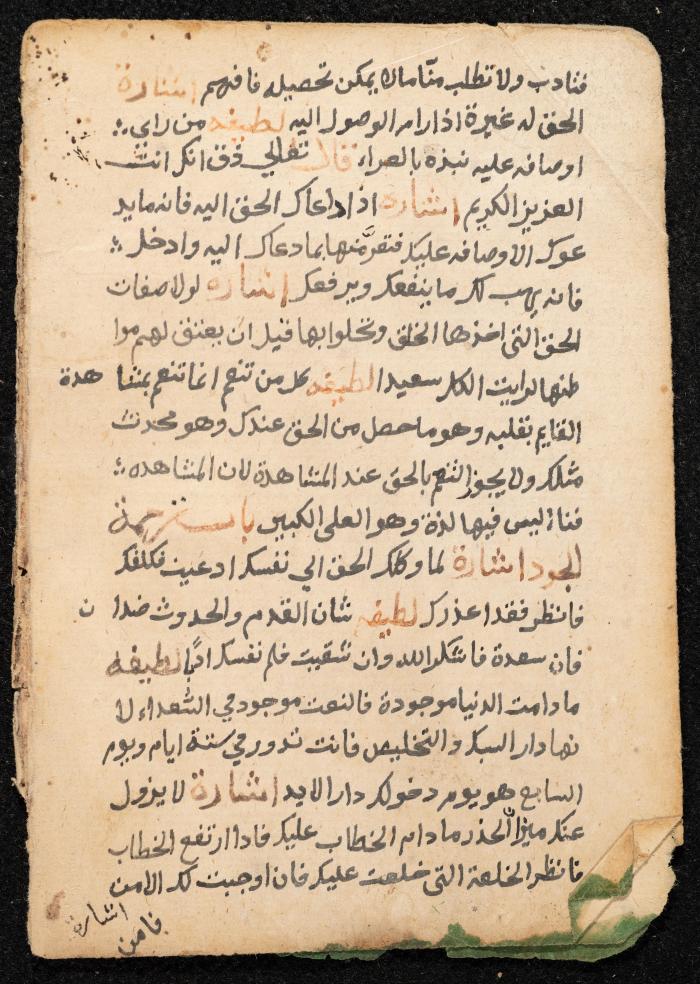 فتادب ولا تطلب منا مالا يمكن تحصيله فافهم اشارة
الحق له غيرة اذا رام الوصول اليه لطيفه من راي
اوصافه عليه نبذه بالعراء قال تعالي ذق انك انت
العزيز الكريم اشارة اذا دعاك الحق اليه فانه ما يد
عوك الا وصافه عليك فتعر منها بما دعاك اليه وادخل
فانه يهب لك ما ينفعك ويرفعك اشارة لولا صفات
الحق التي اخذها الخلق وتحلوا بها قبل ان يعتق لهم موا
طنها لرايت الكل سعيدا لطيفه كل من تنعم انما تنعم بمشا هدة
القايم بقلبه وهو ما حصل من الحق عندك وهو محدث
مثلك ولا يجوز التنعم بالحق عند المشاهدة لان المشاهده
فناء ليس فيها لذة وهو العلي الكبير باب ترجمة
الجود اشارة لما وكلك الحق الي نفسك ادعيت فكلفك
فانظر فقد اعذرك لطيفه شان القدم والحدوث ضدا ن
فان سعدة فاشكر الله وان شقيت فلم نفسك ادبا لطيفه
ما دامت الدنيا موجودة فالنعت موجود في السعداء لا
نها دار السبك والتخليص فانت تدور في ستة ايام ويوم
السابع هو يوم دخولك دار الابد اشارة لا يزول
عنك ميزان الحذر ما دام الخطاب عليك فاذا ارتفع الخطاب
فانظر الخلعة التي خلعت عليك فان اوجبت لك الامن
فامن اشارة